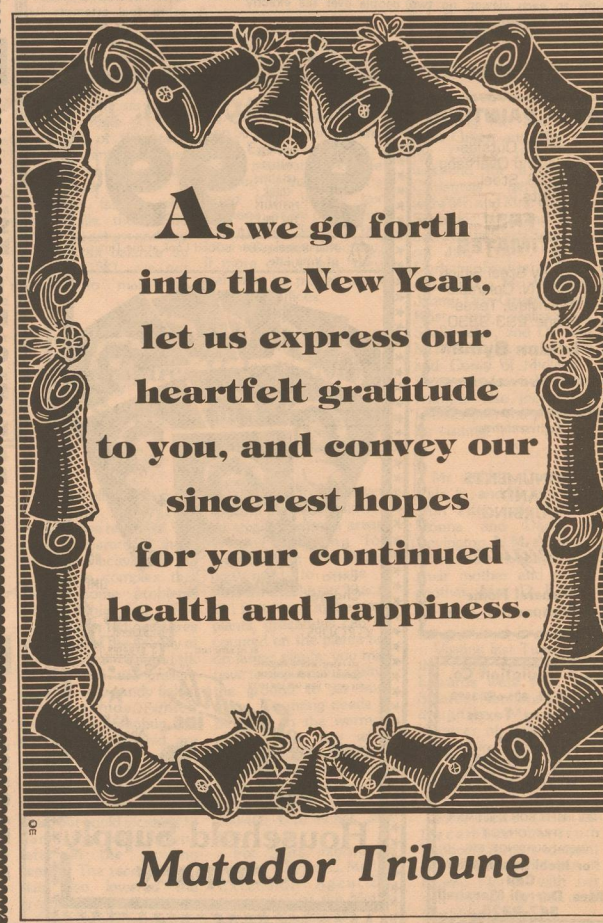 As we go forth
into the New Year,
let us express our
heartfelt gratitude
to you, and convey our
sincerest hopes
for your continued
health and happiness.
Matador Tribune